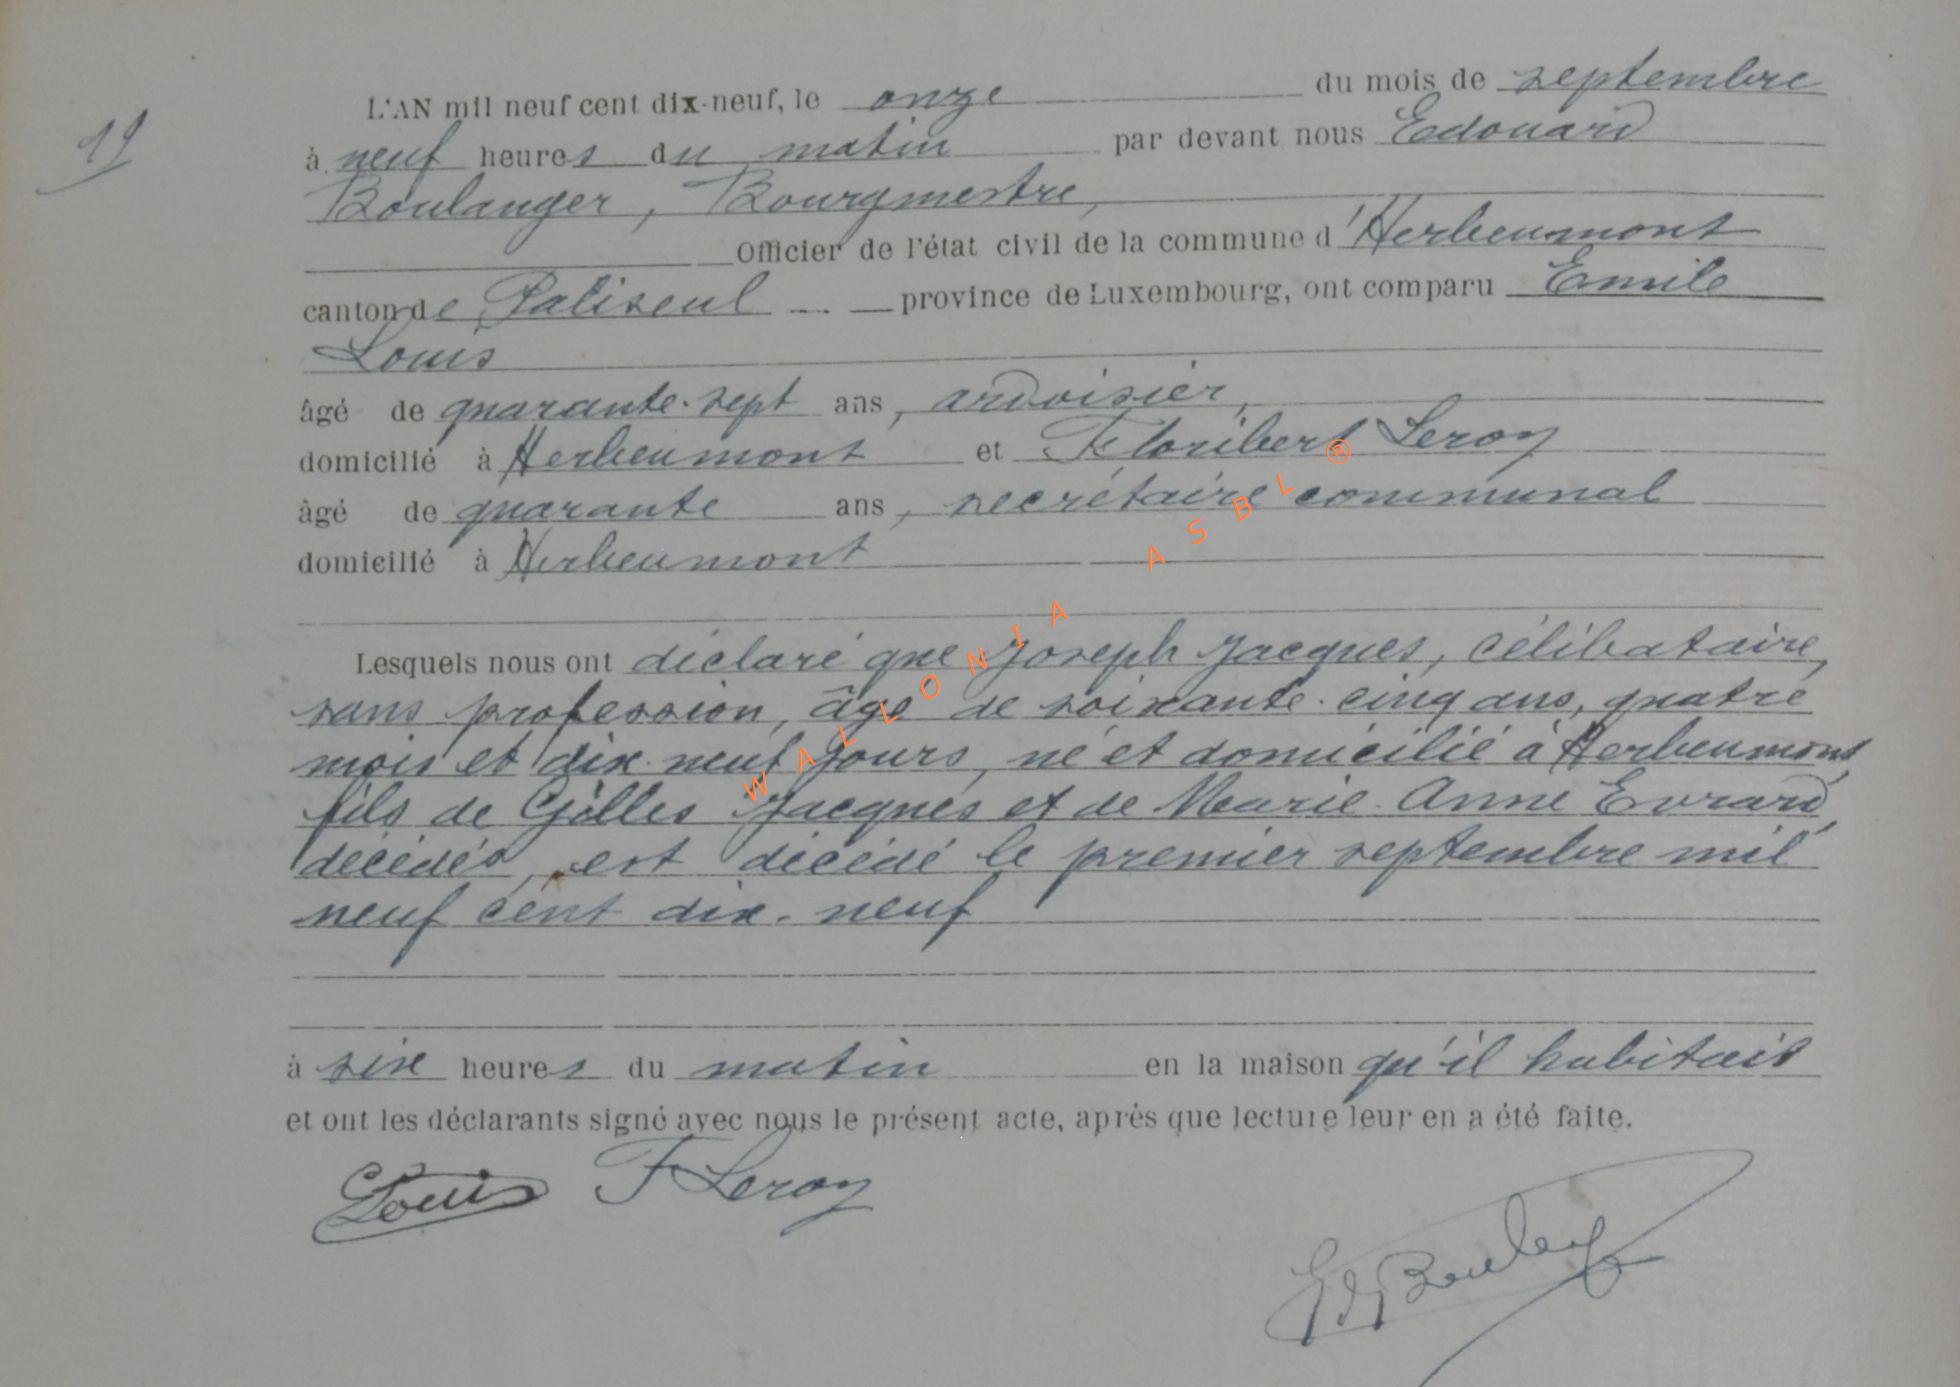 19
L'AN mil neuf cent dix-neuf, le onze du mois de septembre
à neuf heures du matin par devant nous Edouard
Boulanger, Bourgmestre,
Officier de l'état civil de la commune d'Herbeumont
canton de Paliseul province de Luxembourg, ont comparu Emile
Louis
âgé de quarante-sept ans, ardoisier,
domicilié à Herbeumont et Floribert Leroy
âgé de quarante ans, secrétaire communal
domicilié à Herbeumont
Lesquels nous ont déclaré que Joseph Jacques, célibataire,
sans profession, âgé de soixante-cinq ans, quatre
mois et dix-neuf jours, né et domicilié à Herbeumont,
fils de Gilles Jacques et de Marie-Anne Evrard,
décédés, est décédé le premier septembre mil
neuf cent dix-neuf
à six heures du matin en la maison qu'il habitait
et ont les déclarants signé avec nous le présent acte, après que lecture leur en a été faite.
E Louis F Leroy
Ed Boulanger
WALLONIA ASBL ®